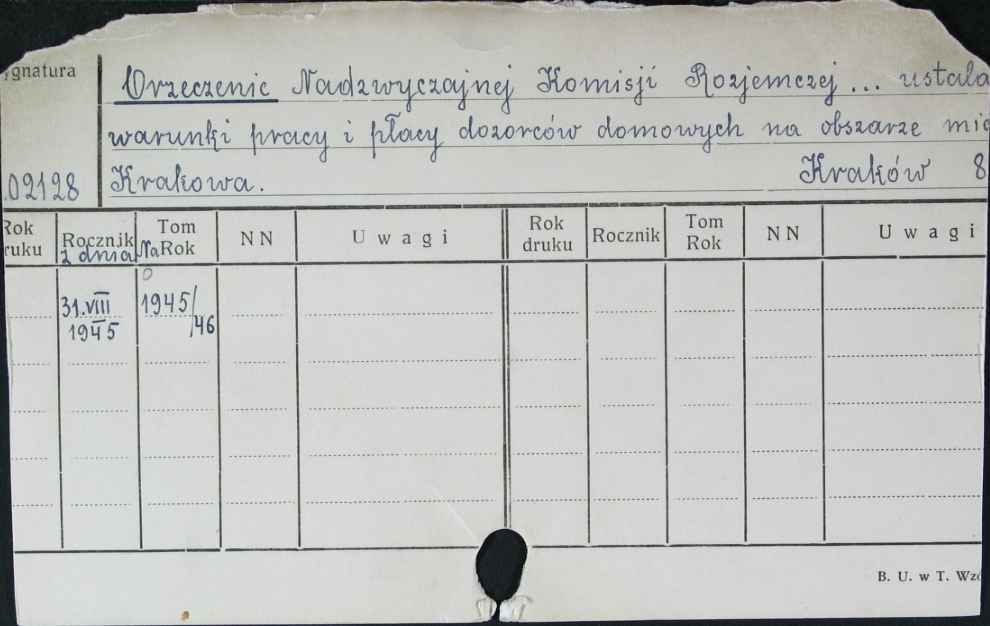 ygnatura
Orzeczenie Nadzwyczajnej Komisji Rozjemczej ... ustala
warunki pracy i płacy dozorców domowych na obszarze mia
.02128 Krakowa. Kraków 8
Rok druku Rocznik z dnia Tom Na Rok NN Uwagi Rok druku Rocznik Tom Rok NN Uwagi
31.VIII 1945/
1945 /46
B. U. w T. Wzó